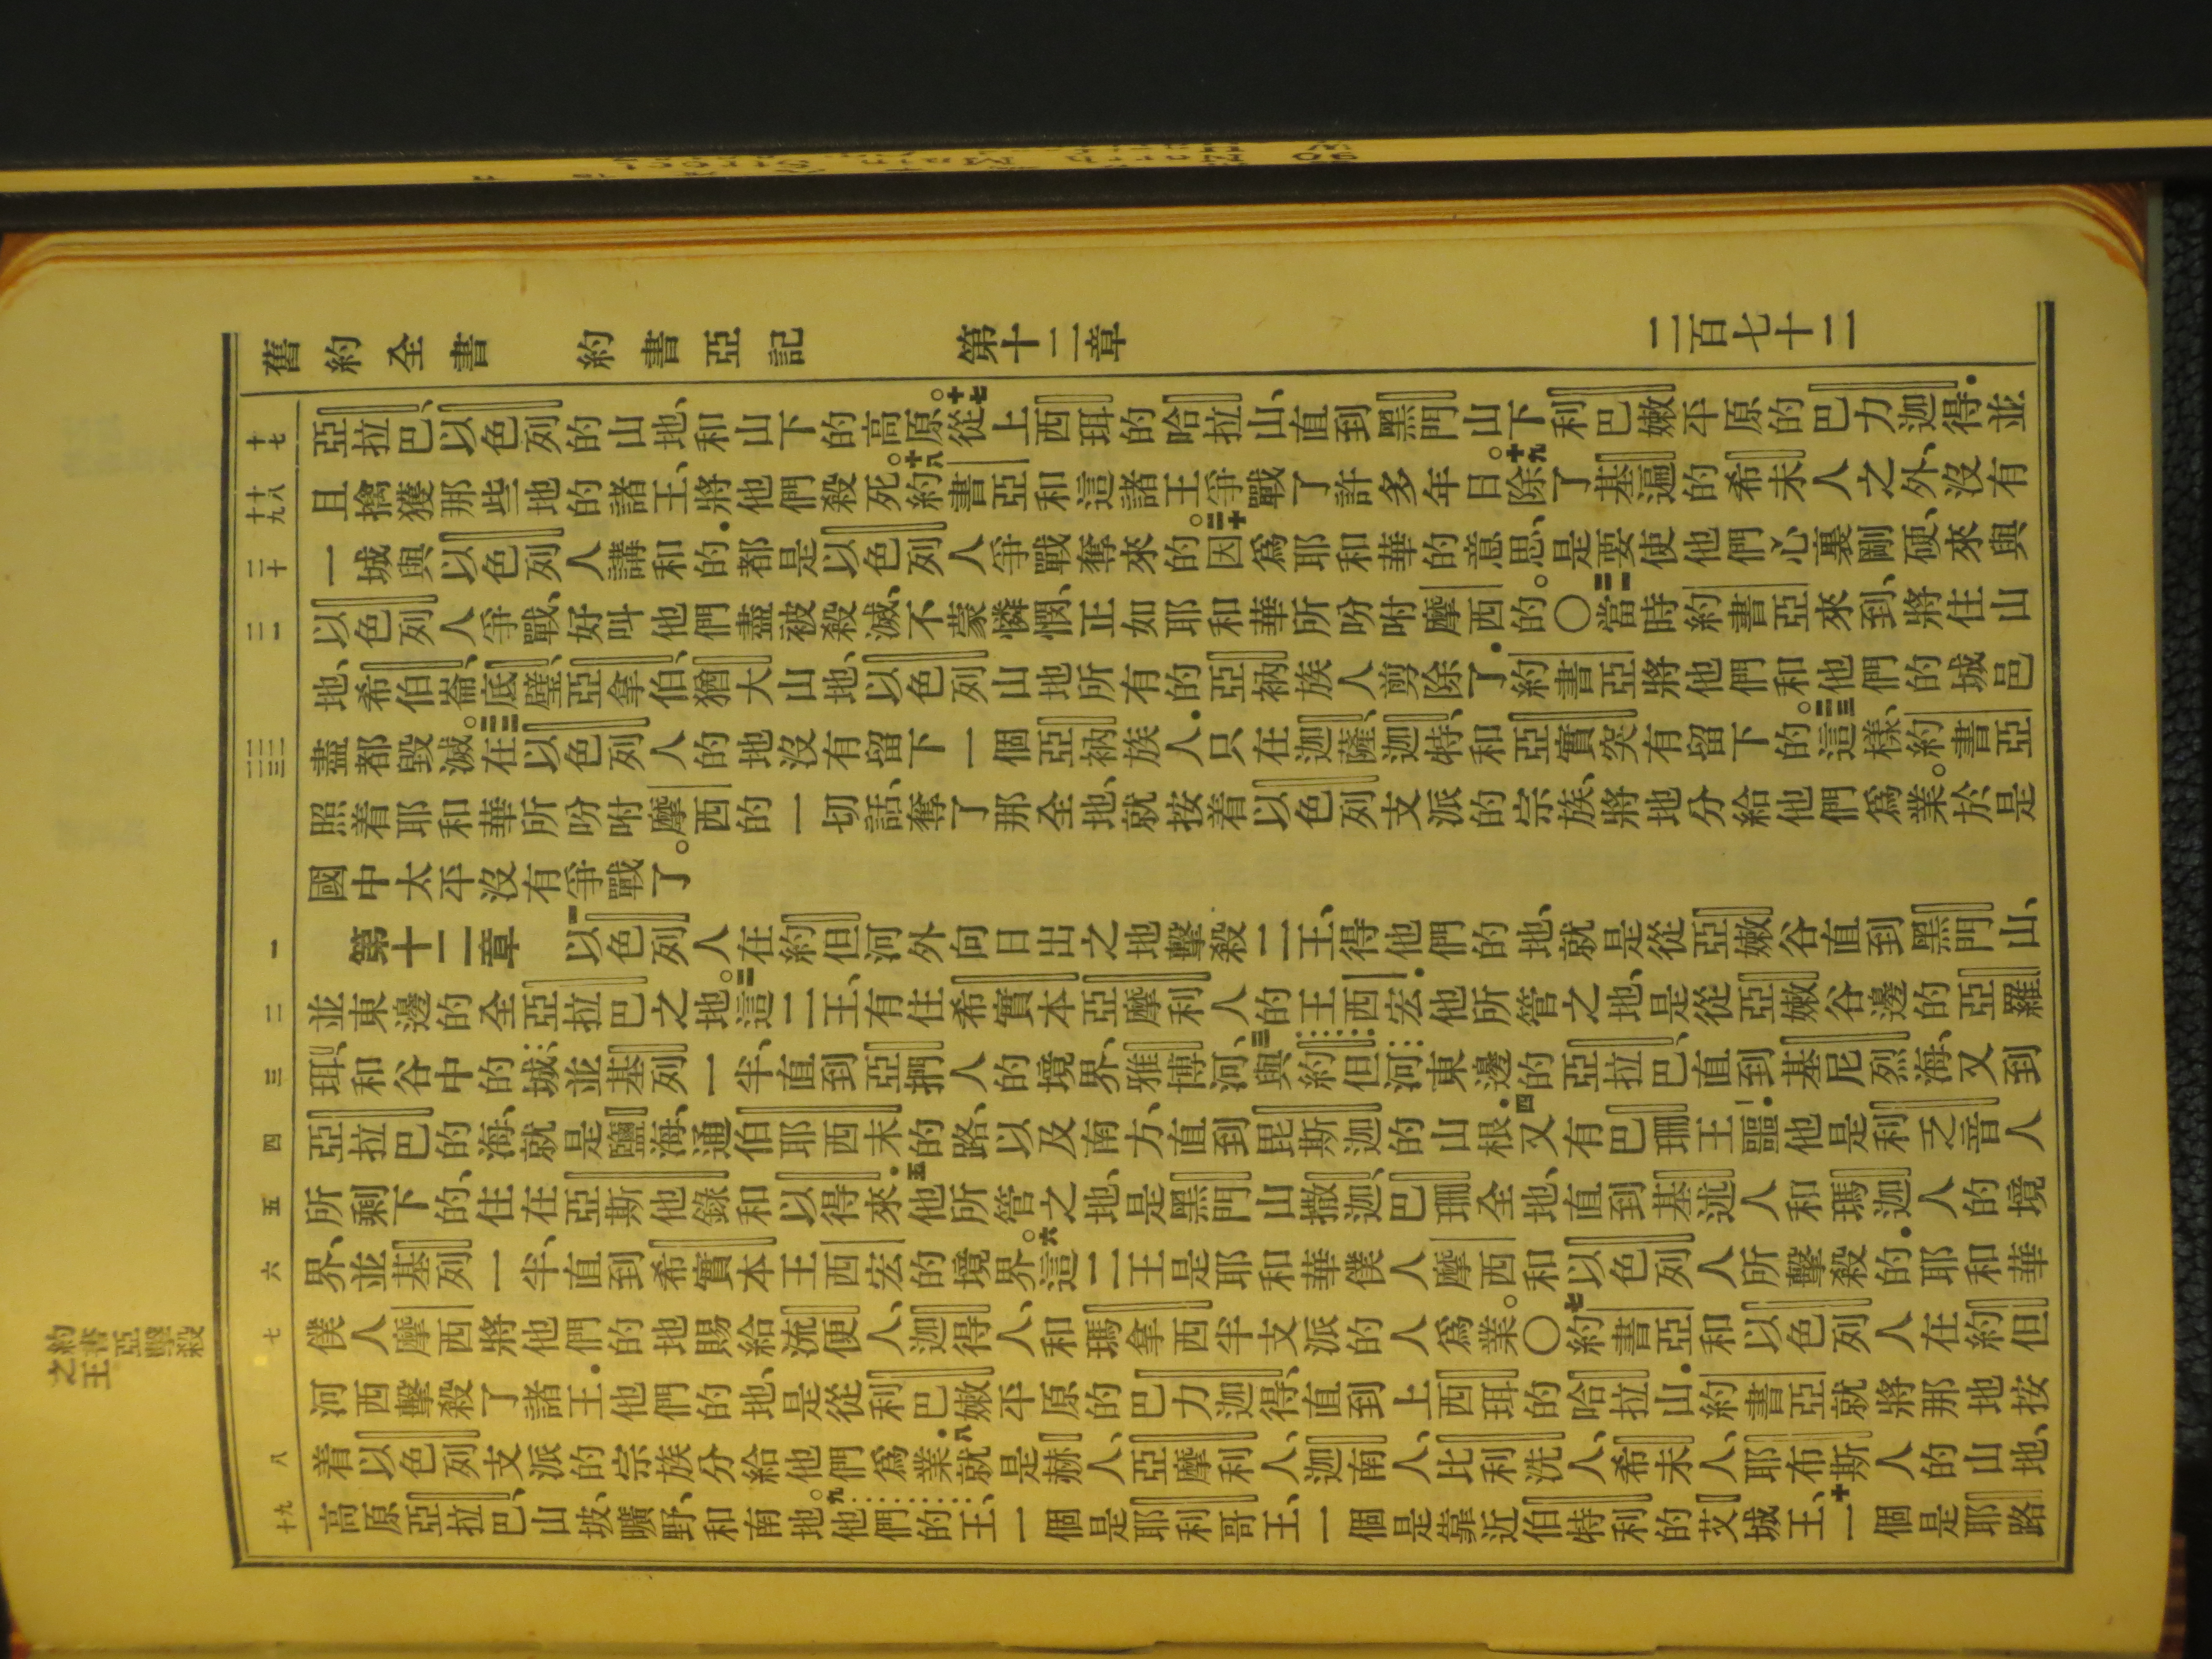 舊約全書　約書亞記　第十二章　二百七十二
十七 亞拉巴、以色列的山地、和山下的高原。十七從上西珥的哈拉山、直到黑門山下利巴嫩平原的巴力迦得．並
十八 十九 且擒獲那些地的諸王、將他們殺死。十八約書亞和這諸王爭戰了許多年日。十九除了基遍的希未人之外、沒有
二十 一城與以色列人講和的．都是以色列人爭戰奪來的。二十因爲耶和華的意思、是要使他們心裏剛硬、來與
二一 以色列人爭戰、好叫他們盡被殺滅、不蒙憐憫、正如耶和華所吩咐摩西的。〇二一當時約書亞來到、將住山
地、希伯崙、底璧、亞拿伯、猶大山地、以色列山地所有的亞衲族人剪除了．約書亞將他們和他們的城邑
二二 二三 盡都毀滅。二二在以色列人的地沒有留下一個亞衲族人．只在迦薩、迦特、和亞實突有留下的。二三這樣、約書亞
照着耶和華所吩咐摩西的一切話、奪了那全地、就按着以色列支派的宗族、將地分給他們爲業。於是
國中太平沒有爭戰了。
一 第十二章　一以色列人在約但河外向日出之地擊殺二王、得他們的地、就是從亞嫩谷直到黑門山、
二 並東邊的全亞拉巴之地。二這二王、有住希實本亞摩利人的王西宏．他所管之地、是從亞嫩谷邊的亞羅
三 珥、和谷中的城、並基列一半、直到亞捫人的境界、雅博河、三與約但河東邊的亞拉巴、直到基尼烈海、又到
四 亞拉巴的海、就是鹽海、通伯耶西末的路、以及南方、直到毘斯迦的山根．四又有巴珊王噩．他是利乏音人
五 所剩下的、住在亞斯他錄和以得來．五他所管之地、是黑門山、撒迦、巴珊全地、直到基述人和瑪迦人的境
六 界、並基列一半、直到希實本王西宏的境界。六這二王是耶和華僕人摩西和以色列人所擊殺的．耶和華
七 僕人摩西將他們的地賜給流便人、迦得人、和瑪拿西半支派的人爲業。〇七約書亞和以色列人在約但
河西擊殺了諸王．他們的地、是從利巴嫩平原的巴力迦得、直到上西珥的哈拉山．約書亞就將那地按
八 着以色列支派的宗族分給他們爲業．八就是赫人、亞摩利人、迦南人、比利洗人、希未人、耶布斯人的山地、
九 十 高原亞拉巴、山坡、曠野、和南地。九他們的王、一個是耶利哥王、一個是靠近伯特利的艾城王、十一個是耶路
約書亞擊殺
之王